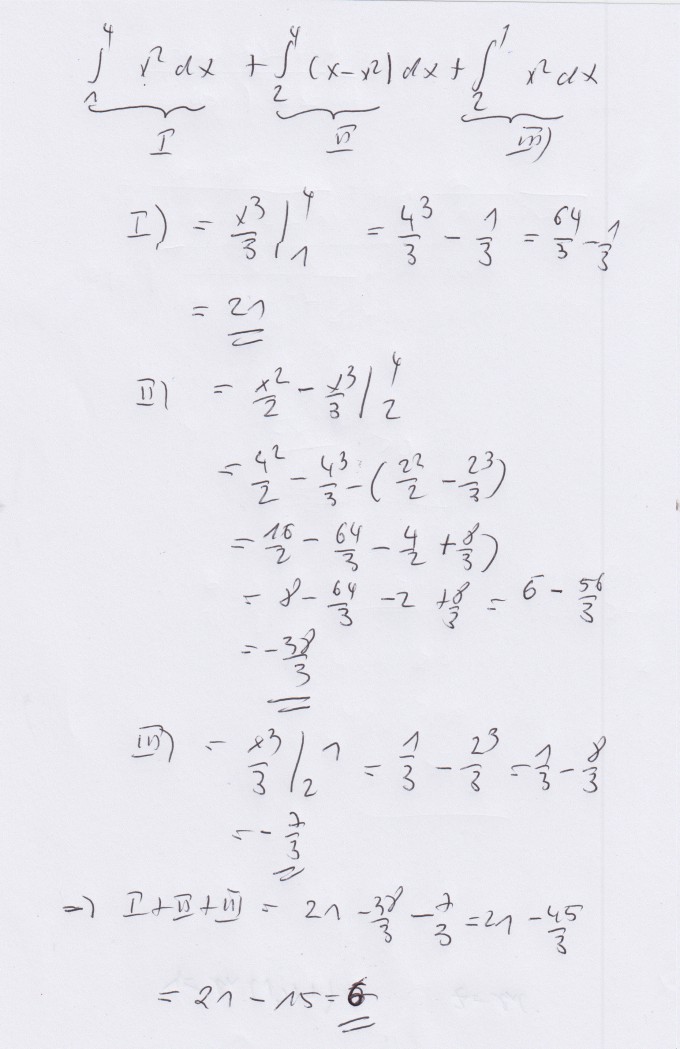 ∫₁⁴ x² dx + ∫₂⁴ (x-x²) dx + ∫₂¹ x² dx
I II III)
I) = x³/3 |₁⁴ = 4³/3 - 1/3 = 64/3 - 1/3
= 21
II) = x²/2 - x³/3 |₂⁴
= 4²/2 - 4³/3 - (2²/2 - 2³/3)
= 16/2 - 64/3 - 4/2 + 8/3)
= 8 - 64/3 - 2 + 8/3 = 6 - 56/3
= - 38/3
III) = x³/3 |₂¹ = 1/3 - 2³/3 = 1/3 - 8/3
= - 7/3
=) I + II + III = 21 - 38/3 - 7/3 = 21 - 45/3
= 21 - 15 = 6